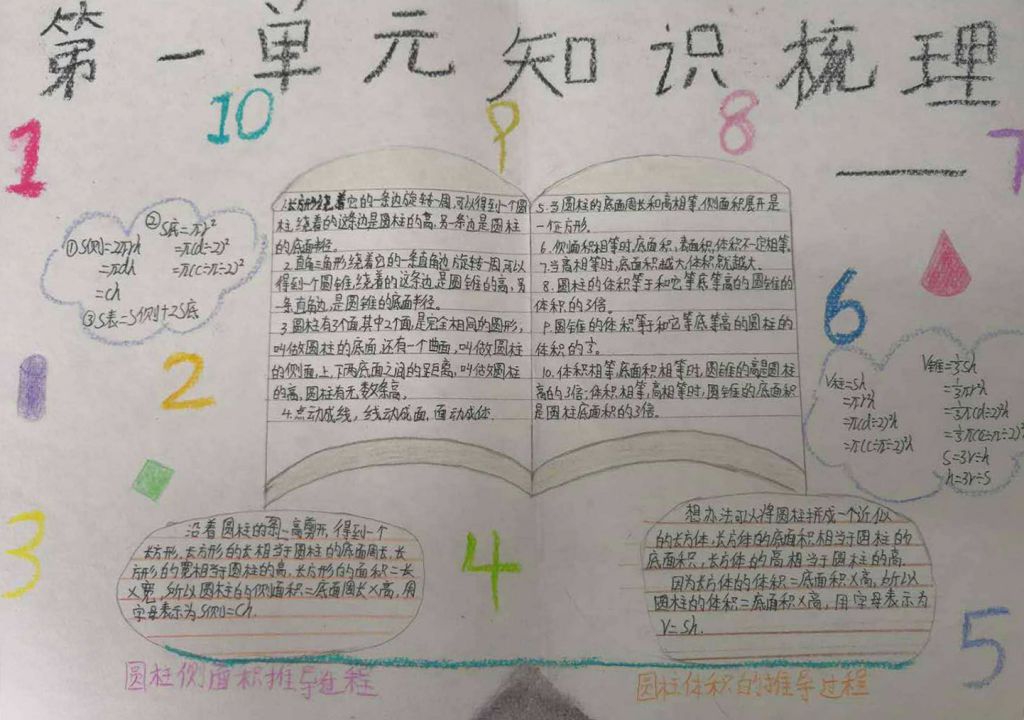 第一单元知识梳理
1
10
9
8
7
①S侧=2πrh
=πdh
=ch
②S底=πr²
=π(d÷2)²
=π(C÷π÷2)²
③S表=S侧+2S底
1.长方形绕着它的一条边旋转一周,可以得到一个圆
柱,绕着的这条边是圆柱的高,另一条边是圆柱
的底面半径。
2.直角三角形绕着它的一条直角边旋转一周,可以
得到一个圆锥,绕着的这条边是圆锥的高,另
一条直角边,是圆锥的底面半径。
3.圆柱有3个面,其中2个面是完全相同的圆形,
叫做圆柱的底面,还有一个曲面,叫做圆柱
的侧面,上、下两底面之间的距离,叫做圆柱
的高,圆柱有无数条高。
4.点动成线,线动成面,面动成体.
5.当圆柱的底面周长和高相等,侧面积展开是
一正方形。
6.侧面积相等时,底面积、表面积、体积不一定相等。
7.当高相等时,底面积越大,体积就越大。
8.圆柱的体积等于和它等底等高的圆锥的
体积的3倍。
9.圆锥的体积等于和它等底等高的圆柱的
体积的⅓。
10.体积相等,底面积相等时,圆锥的高是圆柱
高的3倍;体积相等,高相等时,圆锥的底面积
是圆柱底面积的3倍。
6
2
V柱=sh
=πr²h
=π(d÷2)²h
=π(C÷π÷2)²h
V锥=⅓sh
=⅓πr²h
=⅓π(d÷2)²h
=⅓π(C÷π÷2)²h
S=3V÷h
h=3V÷S
3
沿着圆柱的高剪开,得到一个
长方形,长方形的长相当于圆柱的底面周长,长
方形的宽相当于圆柱的高,长方形的面积=长
×宽,所以圆柱的侧面积=底面周长×高,用
字母表示为S侧=Ch.
4
想办法可以将圆柱拼成一个近似
的长方体,长方体的底面积相当于圆柱的
底面积,长方体的高相当于圆柱的高.
因为长方体的体积=底面积×高,所以
圆柱的体积=底面积×高,用字母表示为
V=Sh.
5
圆柱侧面积推导过程
圆柱体积的推导过程